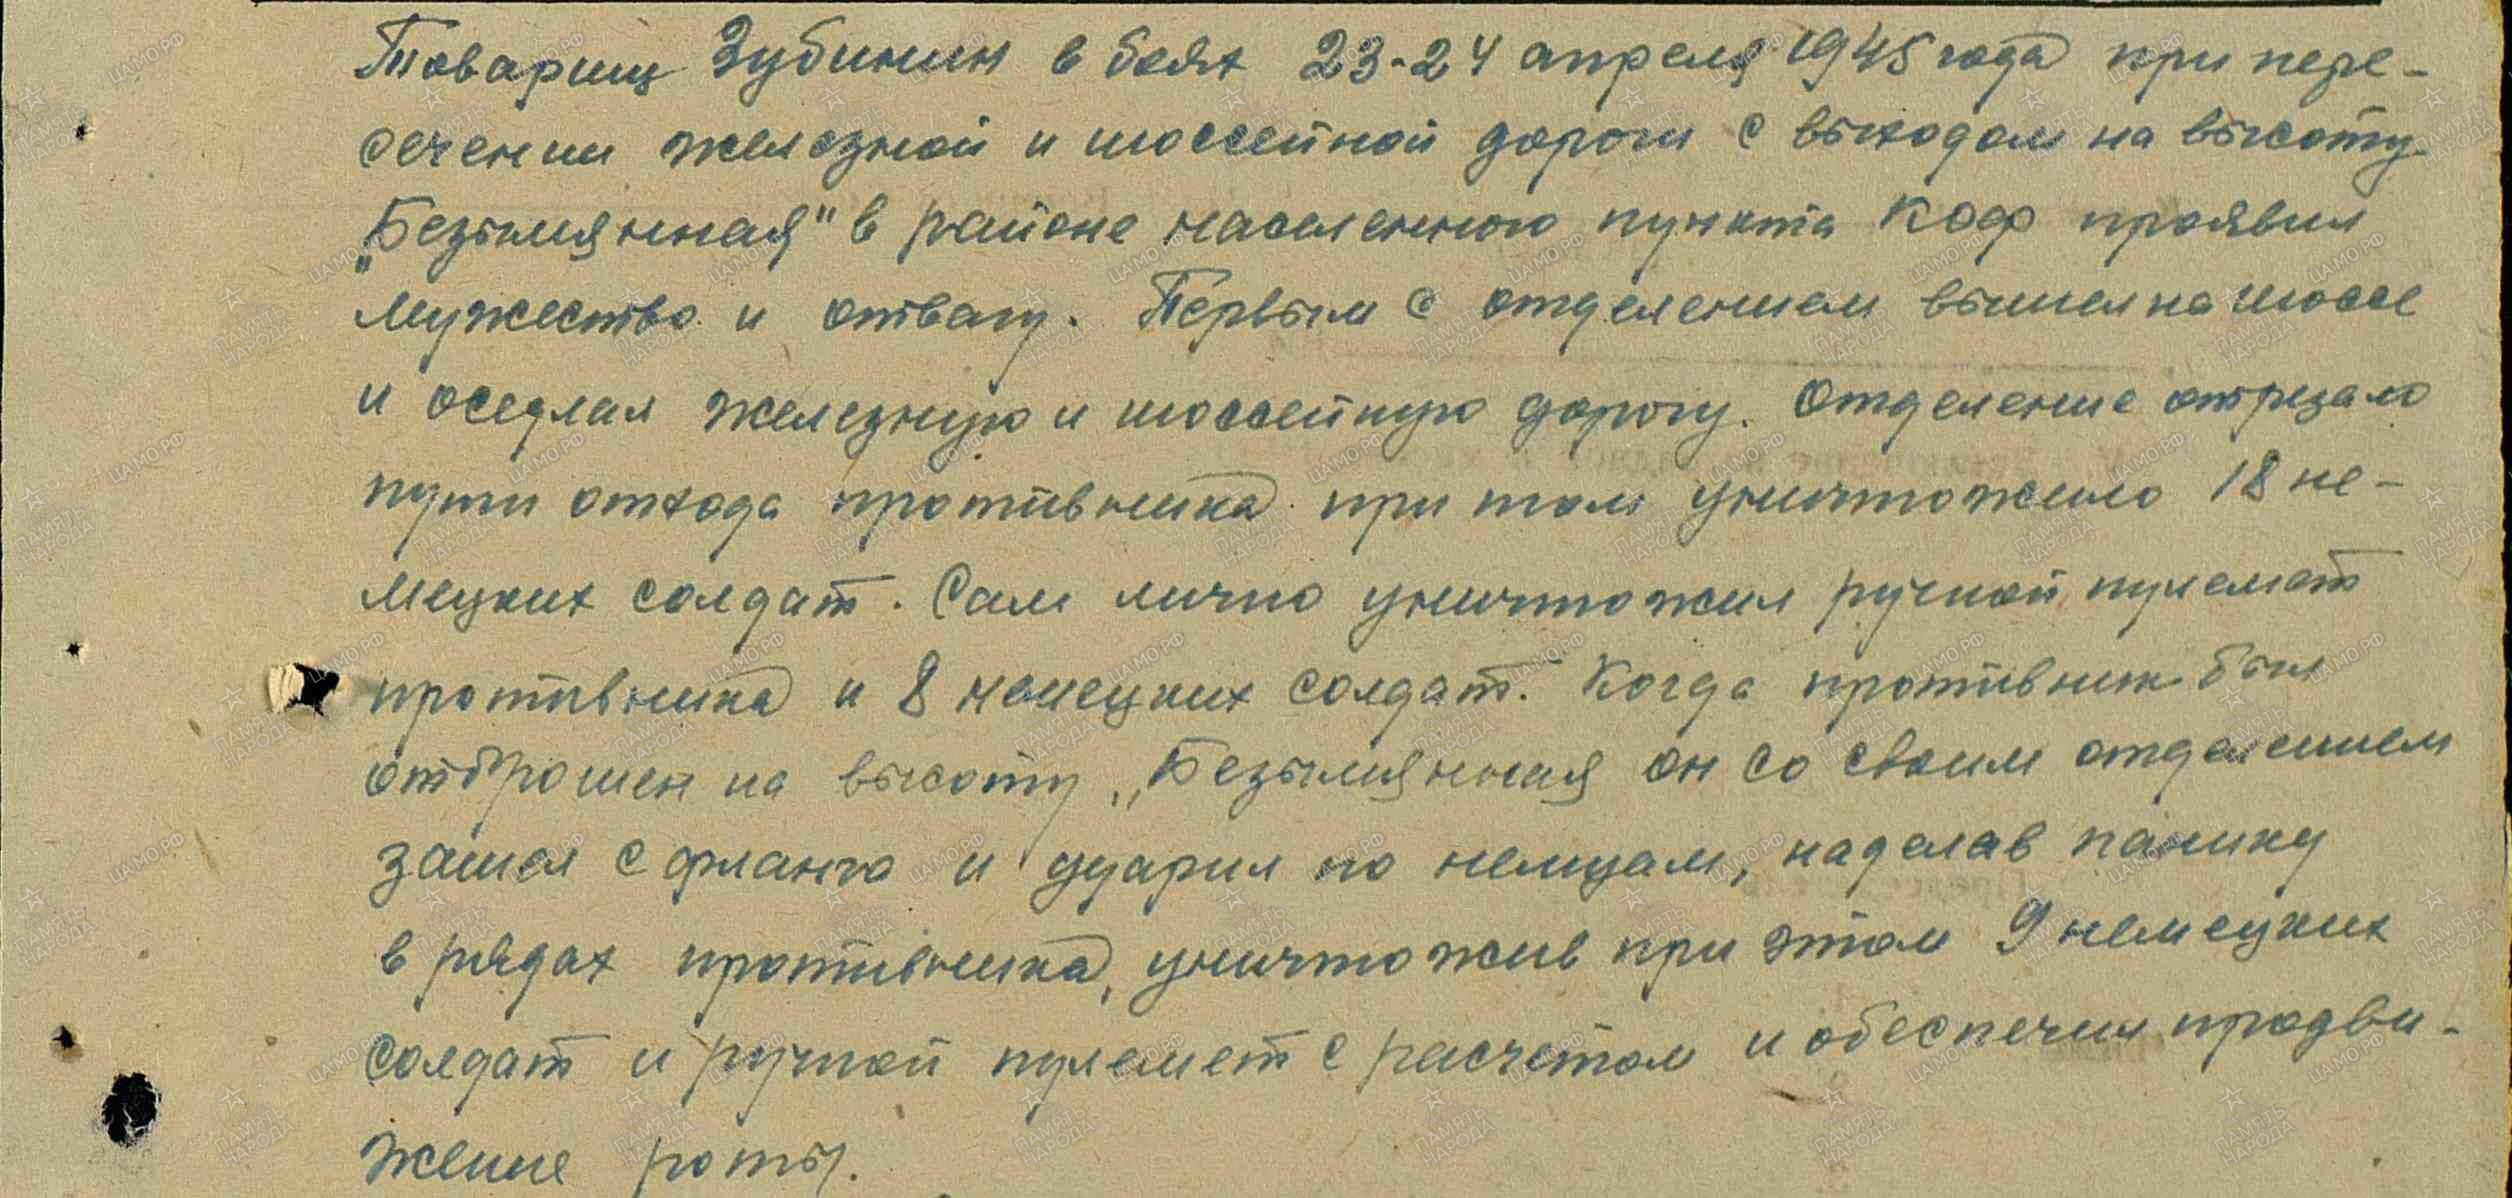 Товарищ Зубинин в боях 23-24 апреля 1945 года при пере-
сечении железной и шоссейной дороги с выходом на высоту
„Безымянная" в районе населенного пункта Каф проявил
мужество и отвагу. Первым с отделением вышел на шоссе
и оседлал железную и шоссейную дорогу. Отделение отрезало
пути отхода противника при том уничтожило 18 не-
мецких солдат. Сам лично уничтожил ручной пулемет
противника и 8 немецких солдат. Когда противник был
отброшен на высоту „Безымянная он со своим отделением
зашел с фланга и ударил по немцам, наделав панику
в рядах противника, уничтожив при этом 9 немецких
солдат и ручной пулемет с расчетом и обеспечил продви-
жение роты.